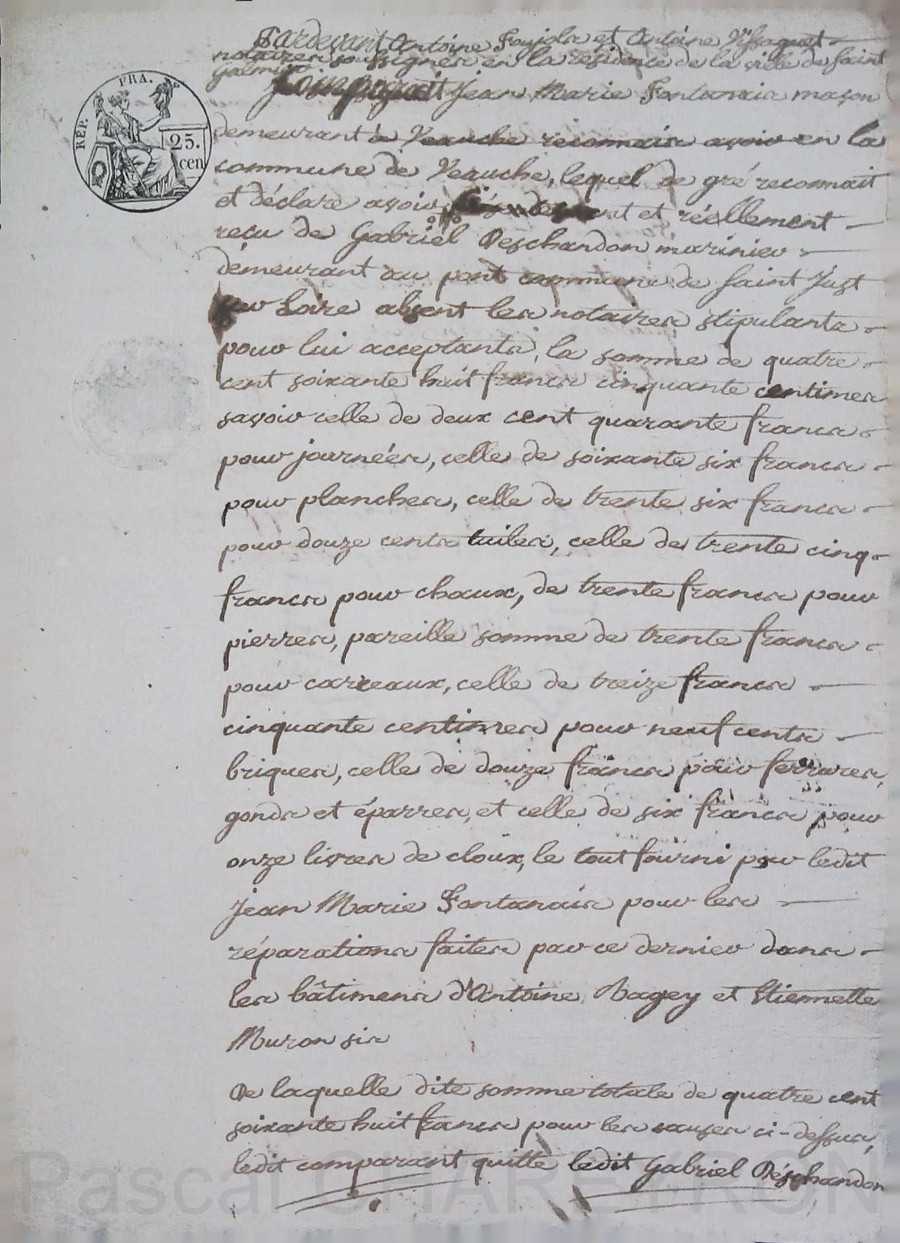 Pardevant Antoine Foujols et Antoine Vissaguet
notaires soussignés en la résidence de la ville de Saint
Galmier
Jean Marie Fontanais maçon
demeurant à Veauche reconnais avoir en la
commune de Veauche, lequel de gré reconnait
et déclare avoir et réellement
reçu de Gabriel Deschandon marinier
demeurant au pont commune de Saint Just
sur Loire absent les notaires stipulants
pour lui acceptants, la somme de quatre
cent soixante huit francs cinquante centimes
savoir celle de deux cent quarante francs
pour journées, celle de soixante six francs
pour planches, celle de trente six francs
pour douze cents tuiles, celle de trente cinq
francs pour chaux, de trente francs pour
pierres, pareille somme de trente francs
pour carreaux, celle de treize francs
cinquante centimes pour neuf cents
briques, celle de douze francs pour ferrures,
gonds et éparres, et celle de six francs pour
onze livres de cloux, le tout fourni par ledit
Jean Marie Fontanais pour les
réparations faites par ce dernier dans
les bâtimens d'Antoine Ragey et Etiennette
Muron sis
De laquelle dite somme totale de quatre cent
soixante huit francs pour les causes ci-dessus,
ledit comparant quitte ledit Gabriel Deschandon
REP. FRA.
25.
cen
Pascal CHAREYRON